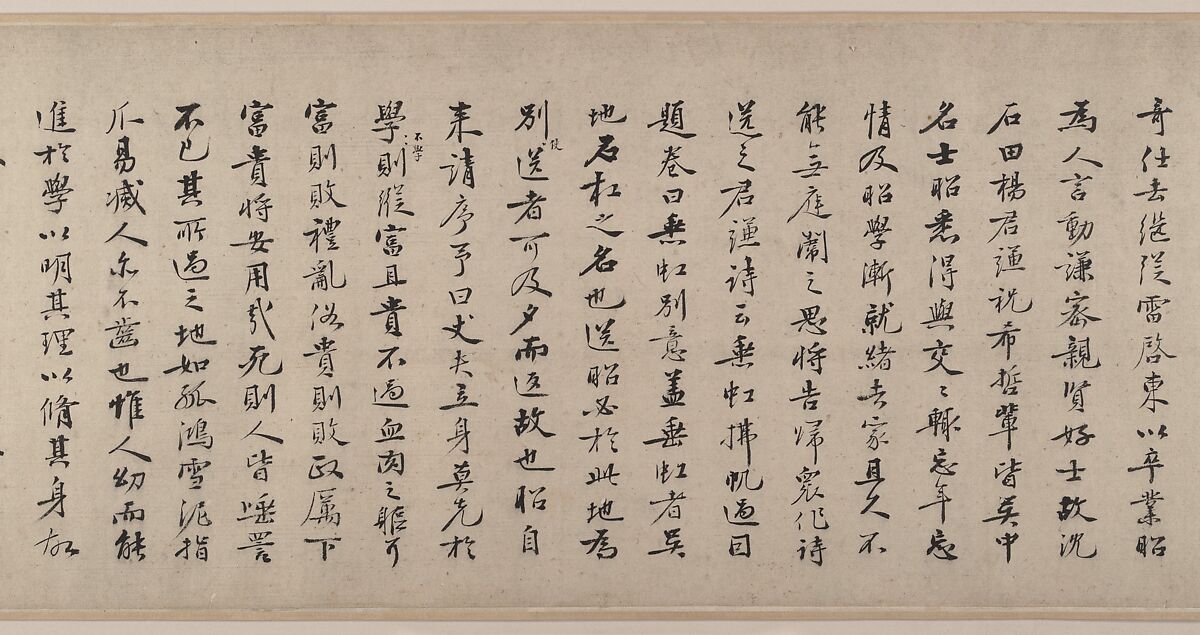 哥仕去继從雷啓東以卒業昭
為人言動謙密親賢好士故沈
石田楊君謙祝希哲輩皆吴中
名士昭悉得與交〻輙忘年忘
情及昭學漸就緒去家且久不
能無庭闈之思將告歸衆作詩
送之君謙詩云垂虹拂帆過因
題卷曰垂虹别意盖垂虹者吴
地石杠之名也送昭必於此地為
别送者可及夕而返故也昭自
来請序予曰丈夫立身莫先於
學不學則縱富且貴不過血肉之軀可
富則敗禮亂俗貴則敗政厲下
富貴將安用哉死則人皆唾詈
不已其所過之地如孤鴻雪泥指
爪易滅人亦不齒也惟人幼而能
進於學以明其理以脩其身故